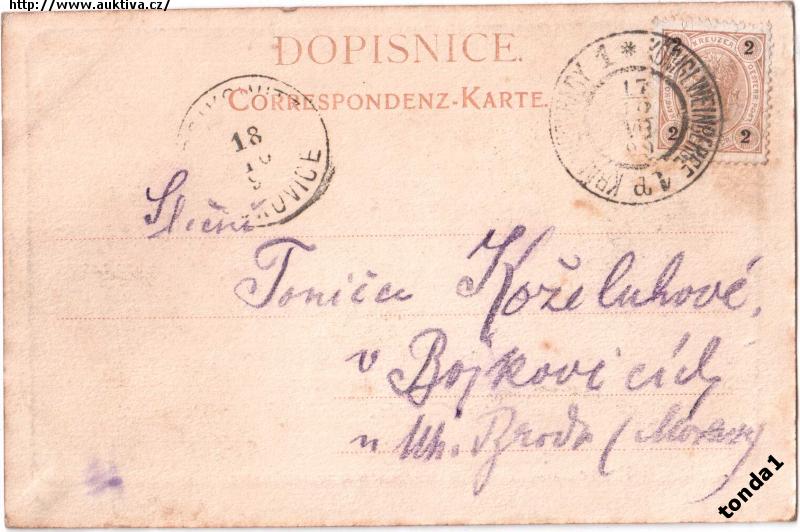 http://www.auktiva.cz/
DOPISNICE.
CORRESPONDENZ-KARTE.
2 KREUZER 2
2 2
1 * KÖNIGL. WEINBERGE 1
18
17
Slečně
Toniča Koželuhové,
v Bojkovicích
u Uh. Brodu (Morava)
tonda1